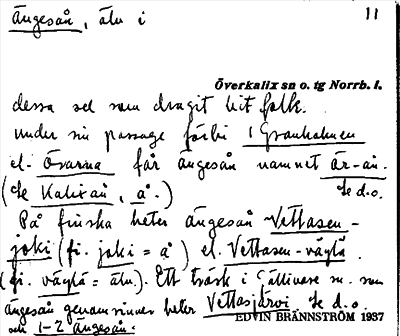 Ängesån, älv i 11
Överkalix sn o. tg Norrb. l.
dessa vel som dragit hit folk.
Under sin passage förbi 1 Granholmen
el. Övarna får ängesån namnet Är-ån.
(se Kalixån, å.) Se d.o.
På finska heter ängesån Vettasen-
joki (fi. joki = å) el. Vettasen-väylä
(fi. väylä = älv). Ett träsk i Gällivare sn. som
ängesån genomrinner heter Vettasjärvi. Se d.o.
och 1-2 ängesån.
EDVIN BRÄNNSTRÖM 1937